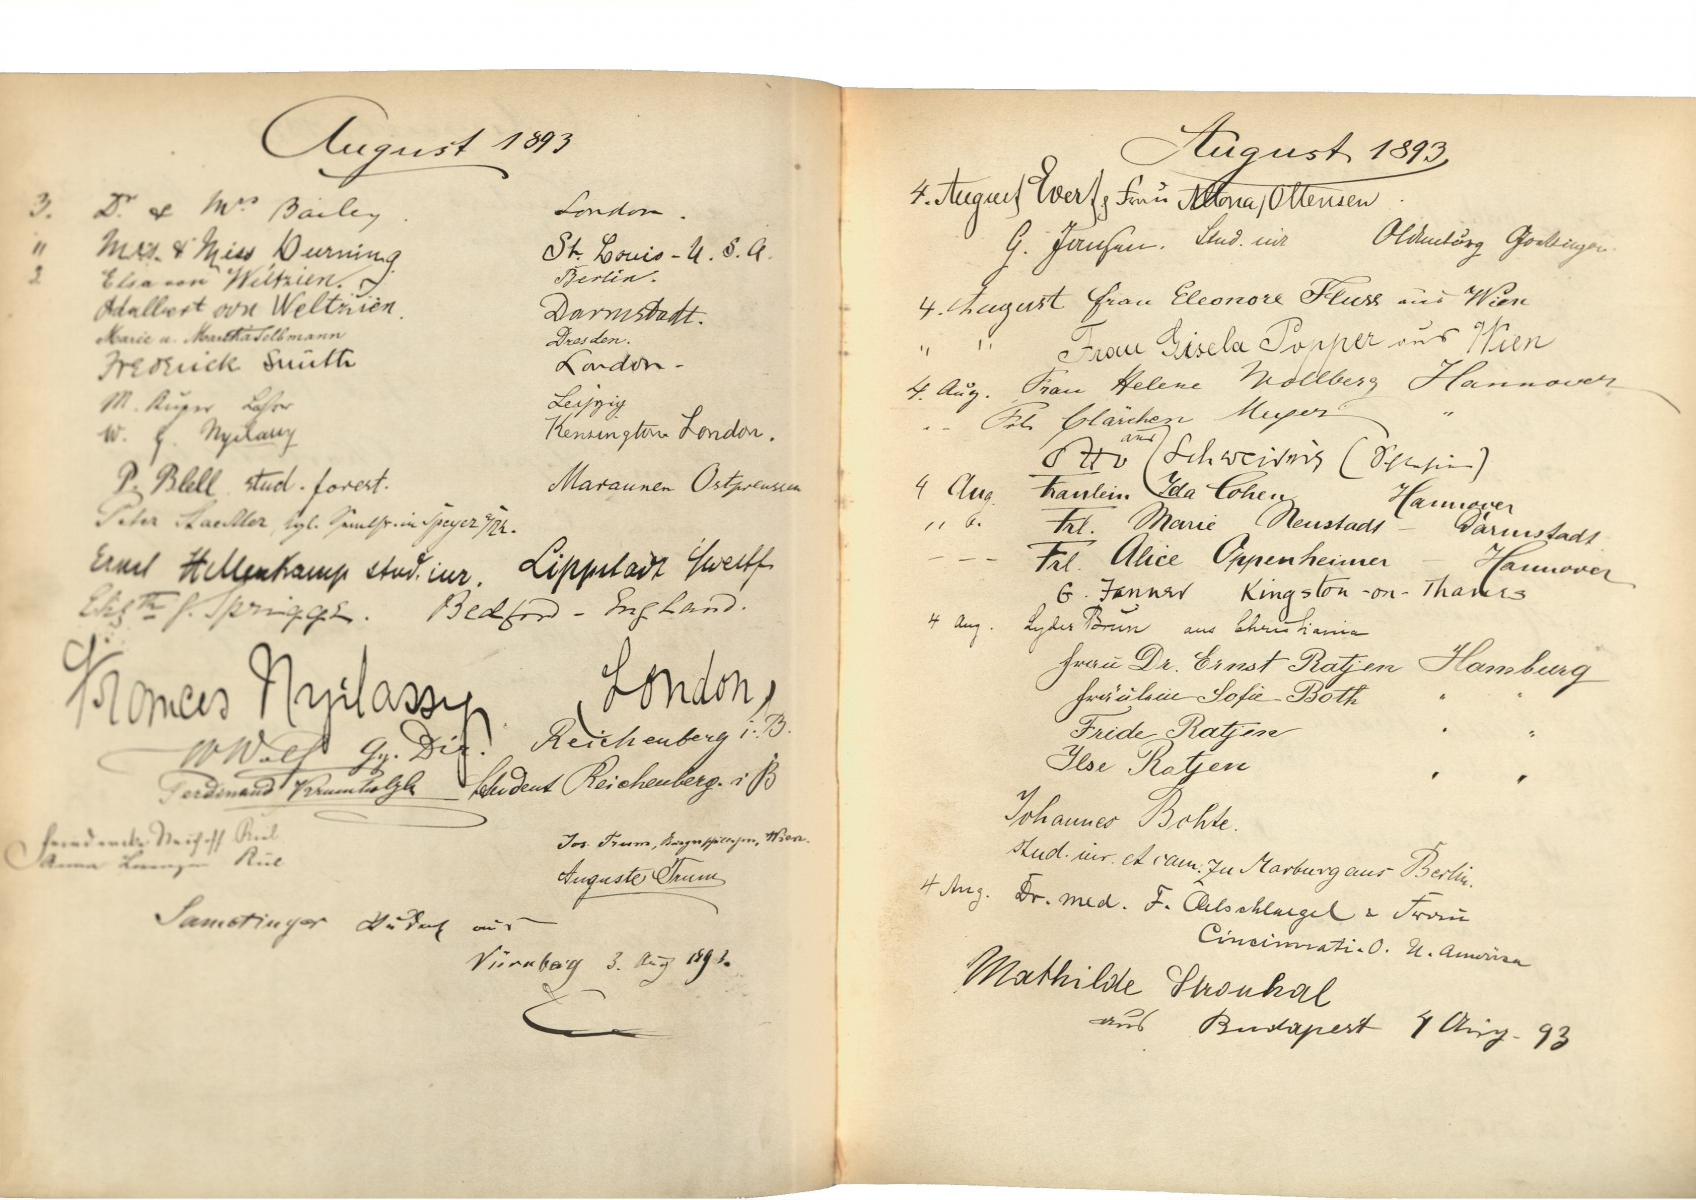 August 1893
3. Dr. & Mrs Bailey. London.
" Mrs. & Miss Durning St. Louis - U. S. A.
Elsa von Weltzien. Berlin.
Adalbert von Weltzien. Darmstadt.
Marie u. Martha Dresden.
Frederick Smith London -
M. Leipzig
W. G. Kensington London.
P. Blell stud. forest. Maraunen Ostpreussen
in Speyer a/Rh.
Ernst Hellenkamp stud. iur. Lippstadt
Bedford - England.
Frances Nyilassy London,
W Wolf Gy. Dir. Reichenberg i. B.
Ferdinand Krumholz Student Reichenberg. i B
Kiel
Anna Kiel
Jos. Trum, Wien.
Auguste Trum
aus
Nürnberg 3. Aug 1893.
August 1893
4. August Evers & Frau Altona/Ottensen
G. Janssen. Stud. iur Oldenburg Goettingen
4. August Frau Eleonore Fluss aus Wien
" " Frau Gisela Popper aus Wien
4. Aug. Frau Helene Wollberg Hannover
Frl. Clärchen Meyer "
aus
Otto
4 Aug. Fraulein Ida Cohen Hannover
Frl. Marie Neustadt - Darmstadt
- - - Frl. Alice Oppenheimer - Hannover
G. Jenner Kingston-on-Thames
4 Aug. Lyder Brun aus Christiania
Frau Dr. Ernst Ratjen Hamburg
Fräulein Sofie Both " "
Fride Ratjen " "
Ilse Ratjen " "
Johannes Bohte.
stud. iur. et cam. zu Marburg aus Berlin.
4 Aug. Dr. med. F. Oelschlaegel & Frau
Cincinnati. O. N. America
Mathilde Strouhal
aus Budapest 4 Aug. 93